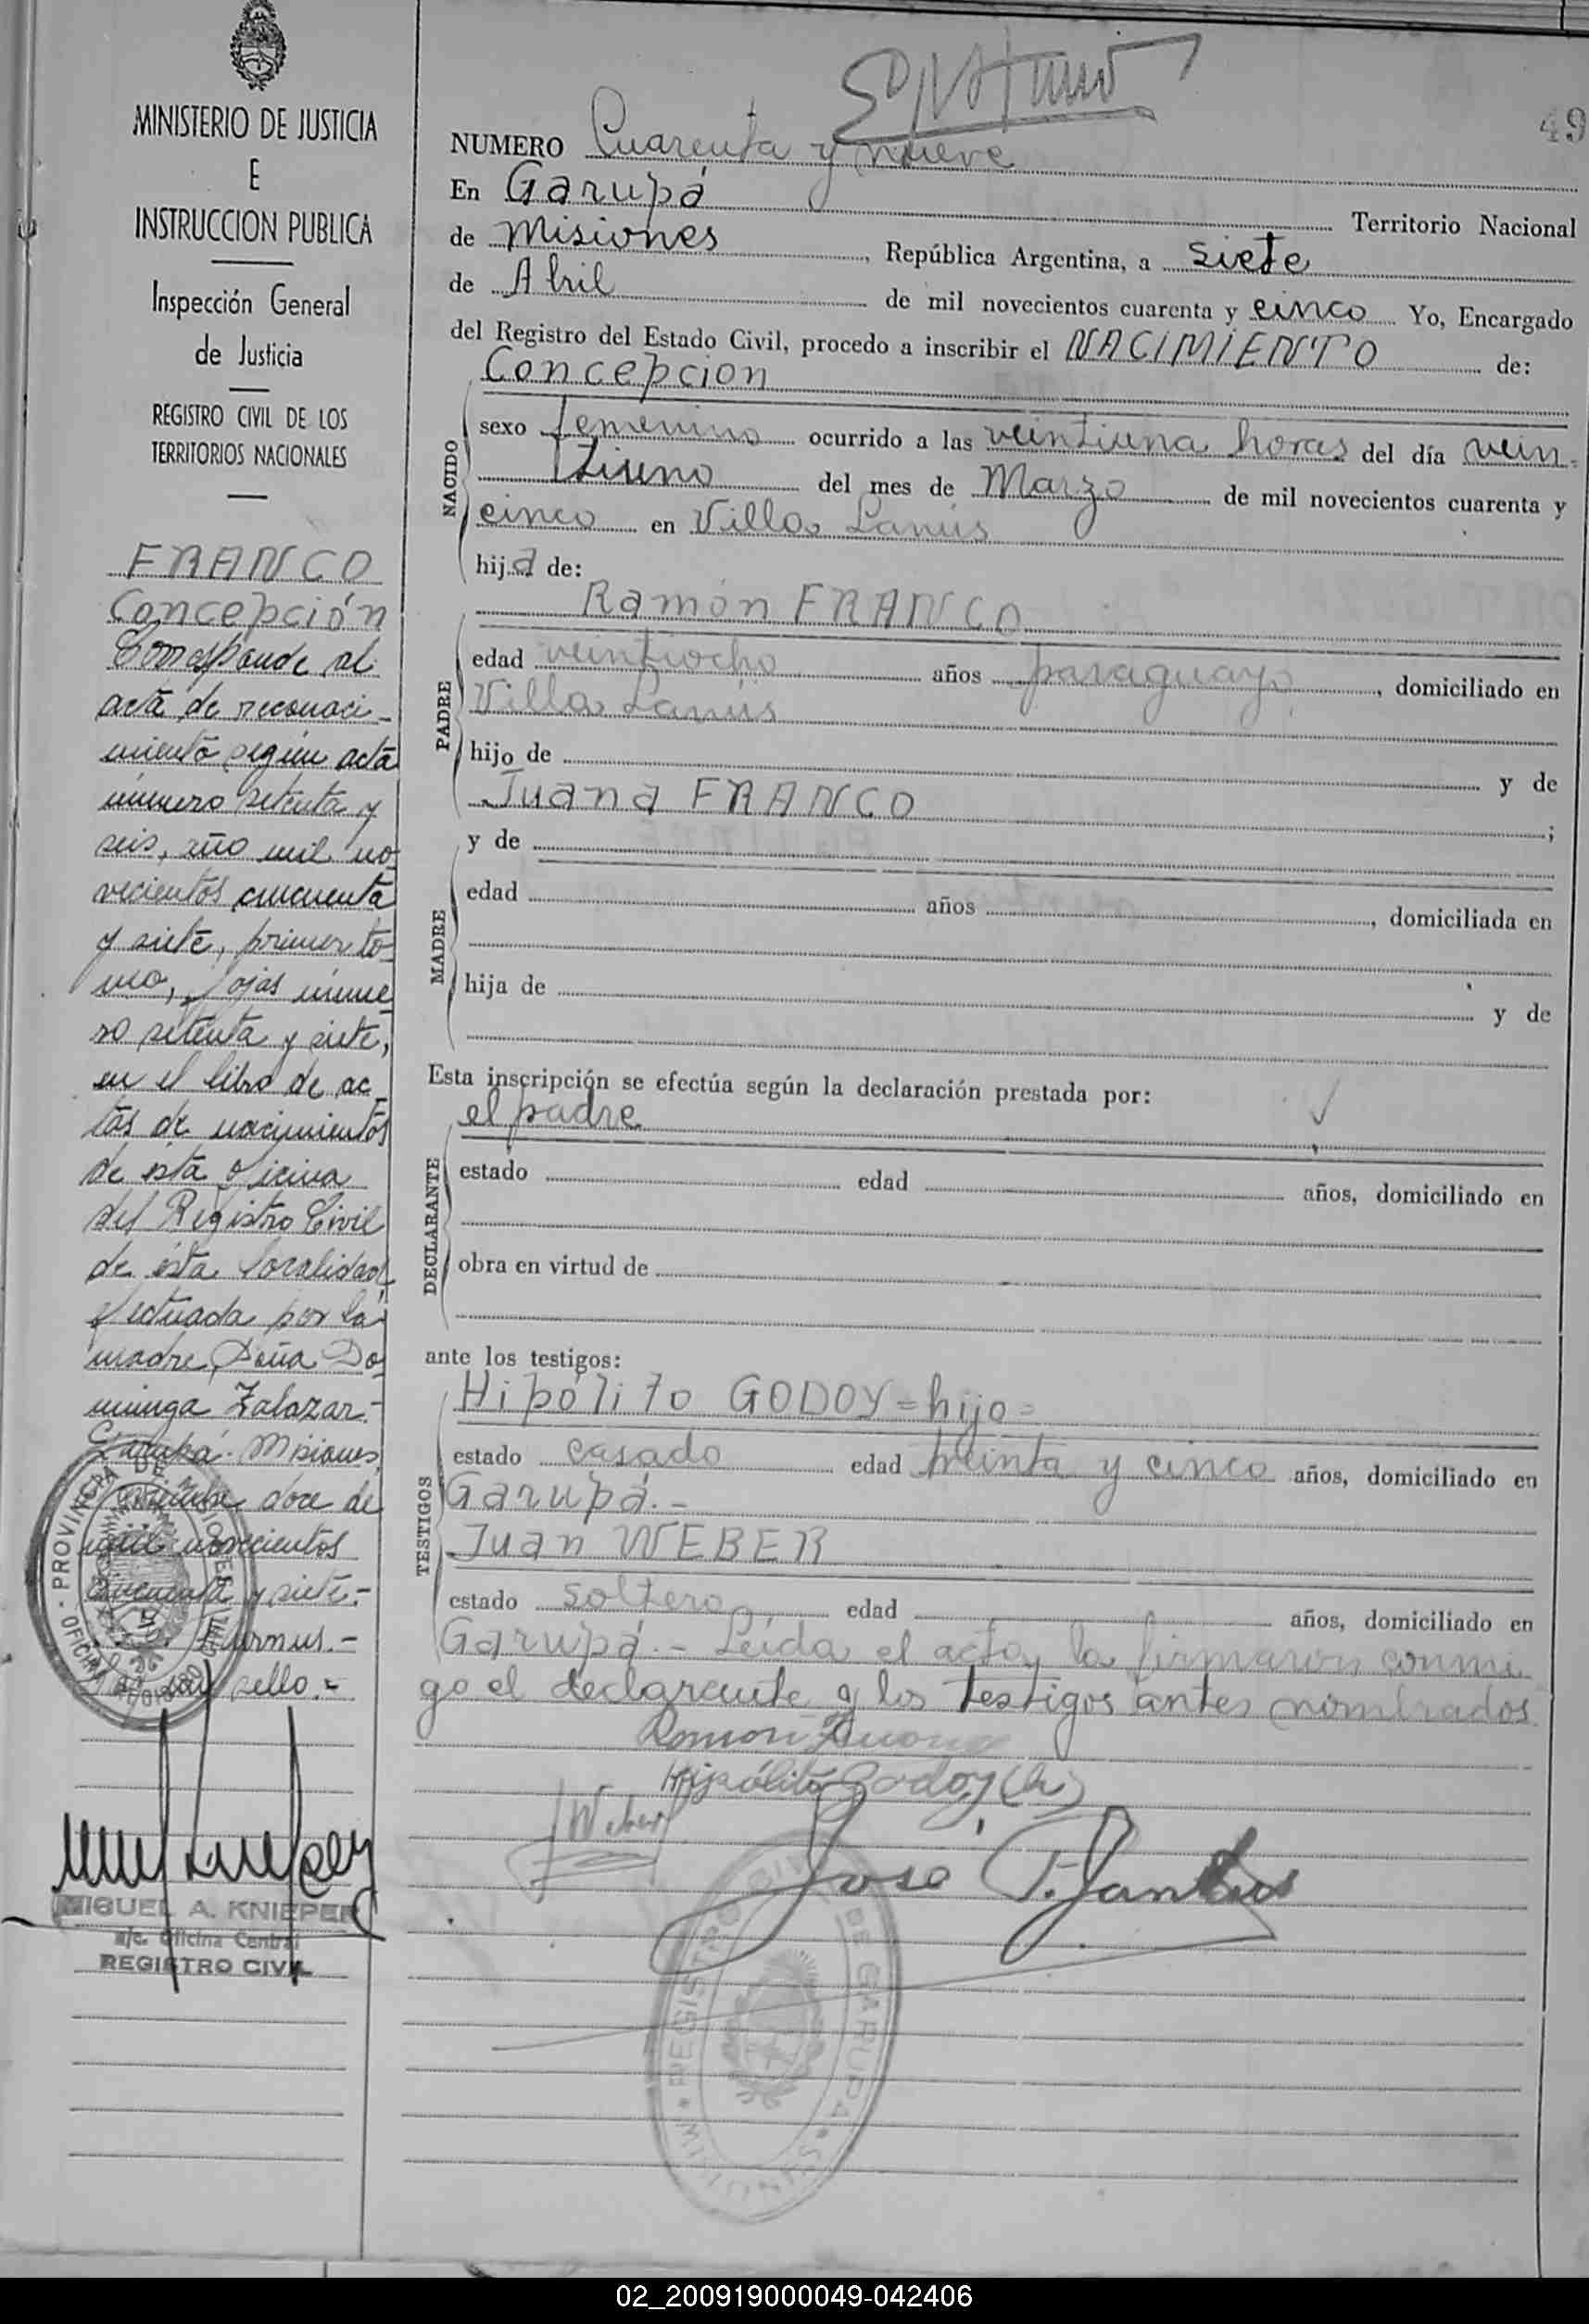 MINISTERIO DE JUSTICIA
E
INSTRUCCION PUBLICA
Inspección General
de Justicia
REGISTRO CIVIL DE LOS
TERRITORIOS NACIONALES
FRANCO
Concepción
Corresponde al
acta de reconoci-
miento según acta
número setenta y
seis, año mil no
vecientos cincuenta
y siete, primer to-
mo, fojas núme
ro setenta y siete,
en el libro de ac
tas de nacimientos
de ésta oficina
del Registro Civil
de ésta localidad,
efectuada por la
madre, Doña Do
minga Zalazar.-
Garupá. Misiones,
doce de
mil novecientos
cincuenta y siete.-
sello.-
MIGUEL A. KNIEPER
a/c. Oficina Central
REGISTRO CIVIL
49
NUMERO Cuarenta y nueve
En Garupá Territorio Nacional
de Misiones, República Argentina, a siete
de Abril de mil novecientos cuarenta y cinco Yo, Encargado
del Registro del Estado Civil, procedo a inscribir el NACIMIENTO de:
Concepcion
NACIDO
sexo femenino ocurrido a las veintiuna horas del día vein-
tiuno del mes de Marzo de mil novecientos cuarenta y
cinco en Villa Lanús
hija de:
Ramón FRANCO
PADRE
edad veintiocho años paraguayo, domiciliado en
Villa Lanús
hijo de y de
Juana FRANCO ;
y de
MADRE
edad años , domiciliada en
hija de y de
Esta inscripción se efectúa según la declaración prestada por:
el padre
DECLARANTE
estado edad años, domiciliado en
obra en virtud de
ante los testigos:
Hipólito GODOY =hijo=
TESTIGOS
estado casado edad treinta y cinco años, domiciliado en
Garupá.-
Juan WEBER
estado soltero, edad años, domiciliado en
Garupá.- Leída el acta, la firmaron conmi
go el declarante y los testigos antes nombrados
Ramon Franco
Hipólito Godoy (h)
J Weber
José
REGISTRO CIVIL DE GARUPA
MISIONES
02_200919000049-042406